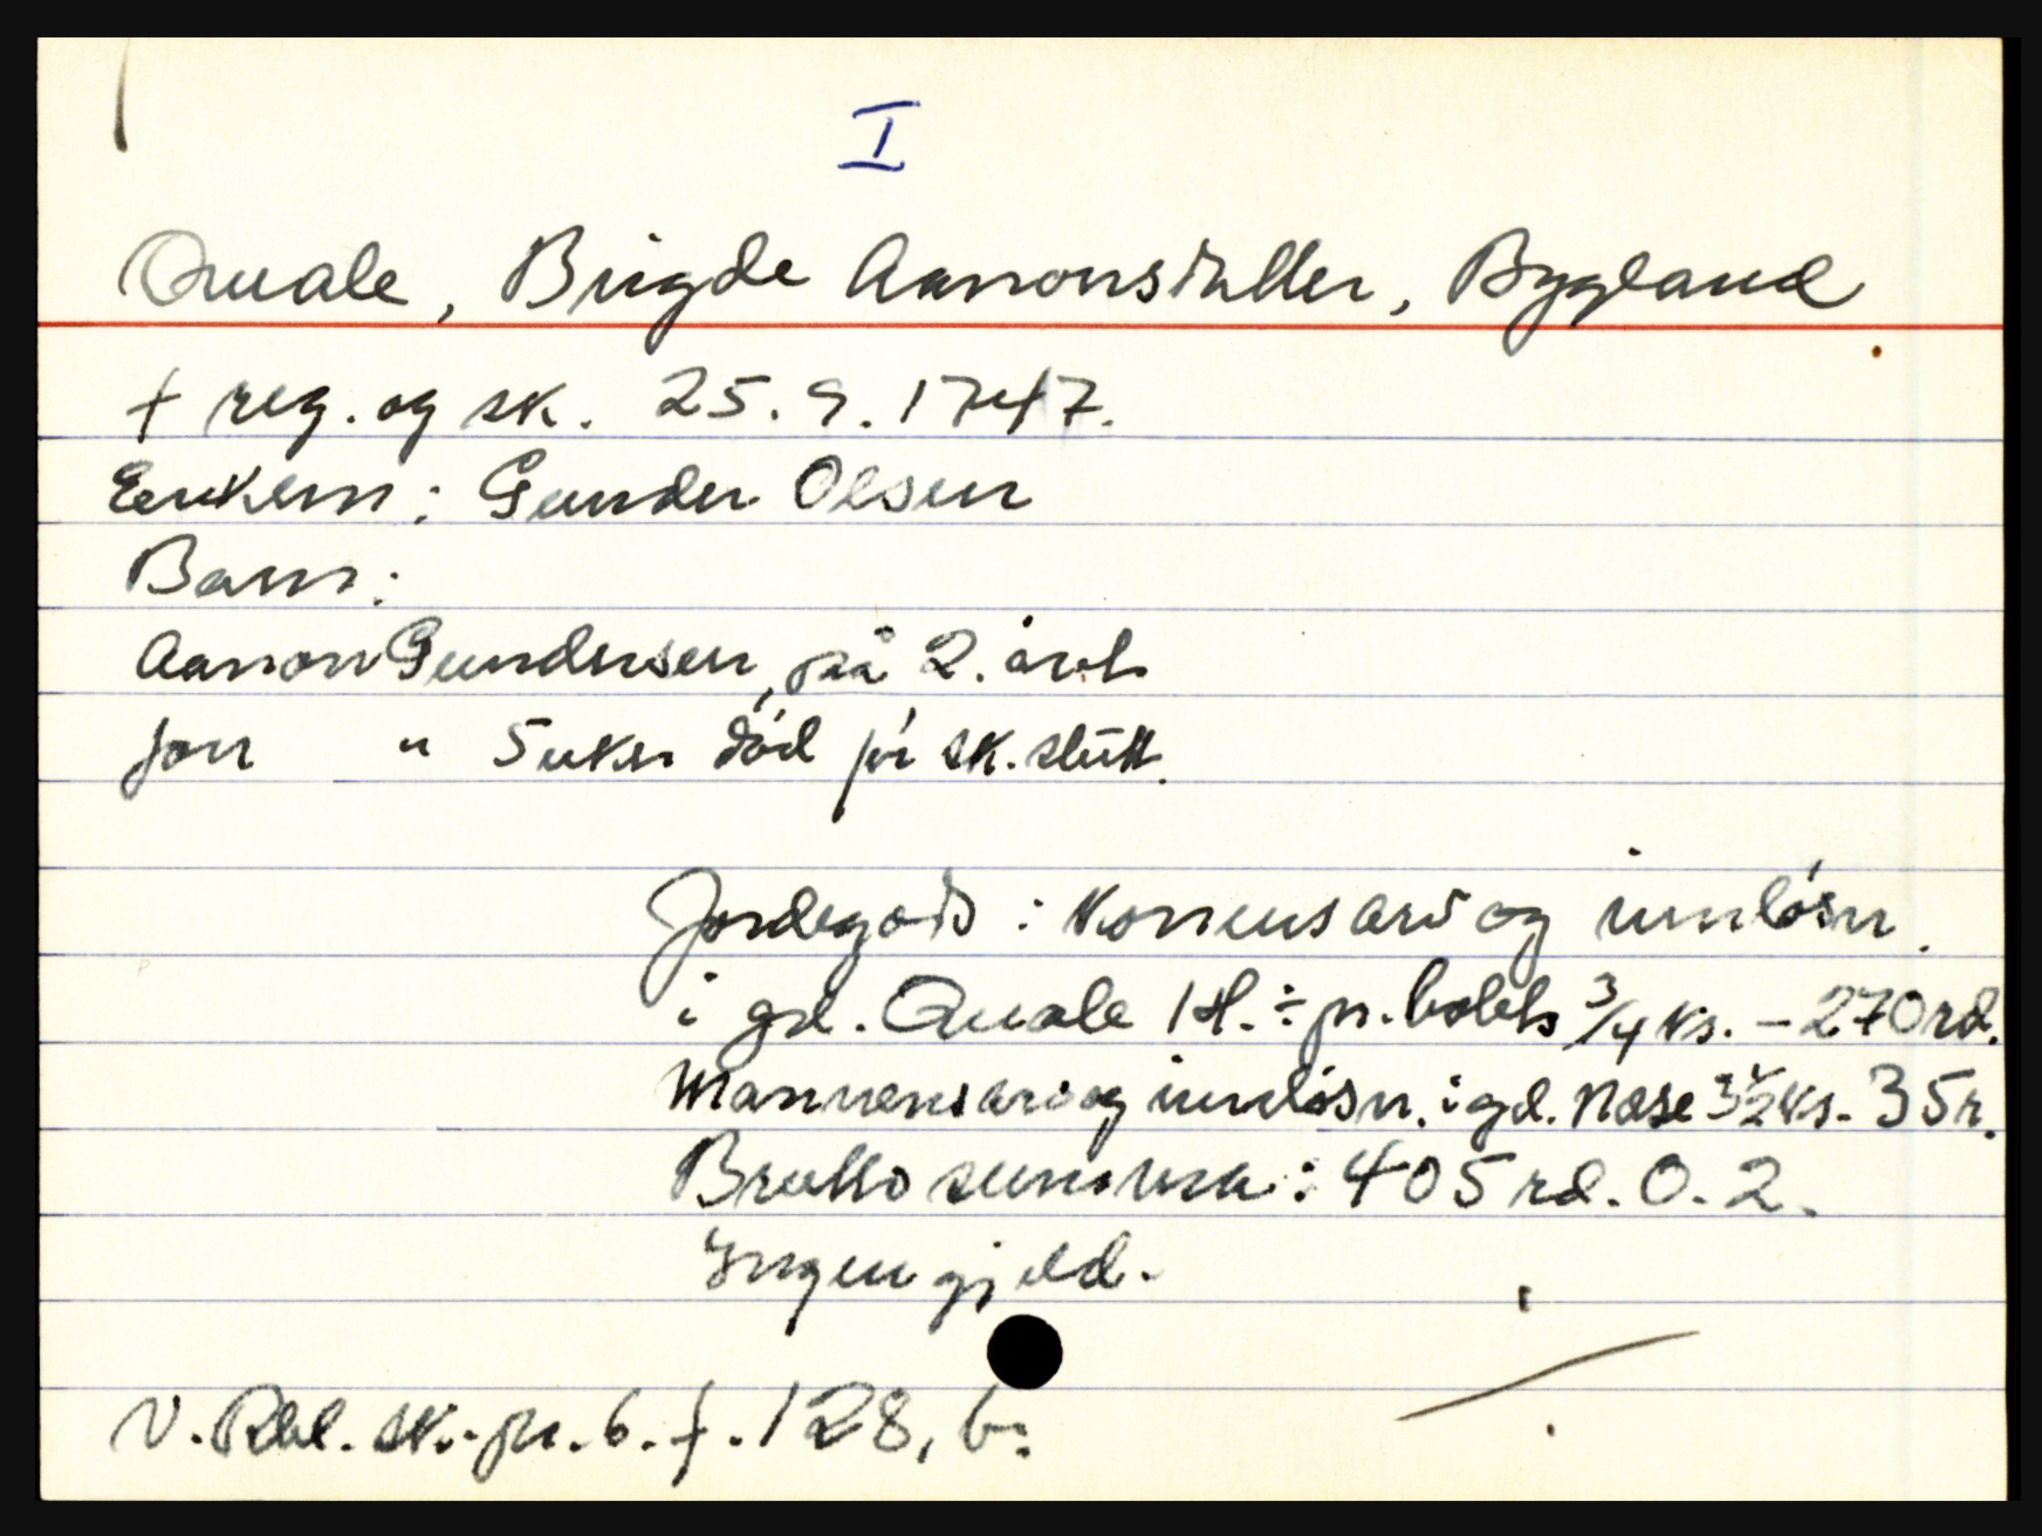 I
Quale, Birgde Aanonsdatter, Bygland
† reg. og sk. 25.9.1747.
Enkem: Gunder Olsen
Barn:
Aanon Gundersen, på 2. året
Jon " 5 uker død før sk. slutt.
Jordegods: Konens arv og innløsn.
i gd. Quale 1 H. ÷ pr. bolets 3/4 ks. - 270 rd.
Mannens arv og innløsn. i gd. Nese 3 1/2 ks. 35 r.
Brutto summa: 405 rd. 0. 2.
Ingen gjeld.
V. Rbl. sk. pr. 6. f. 128, b.